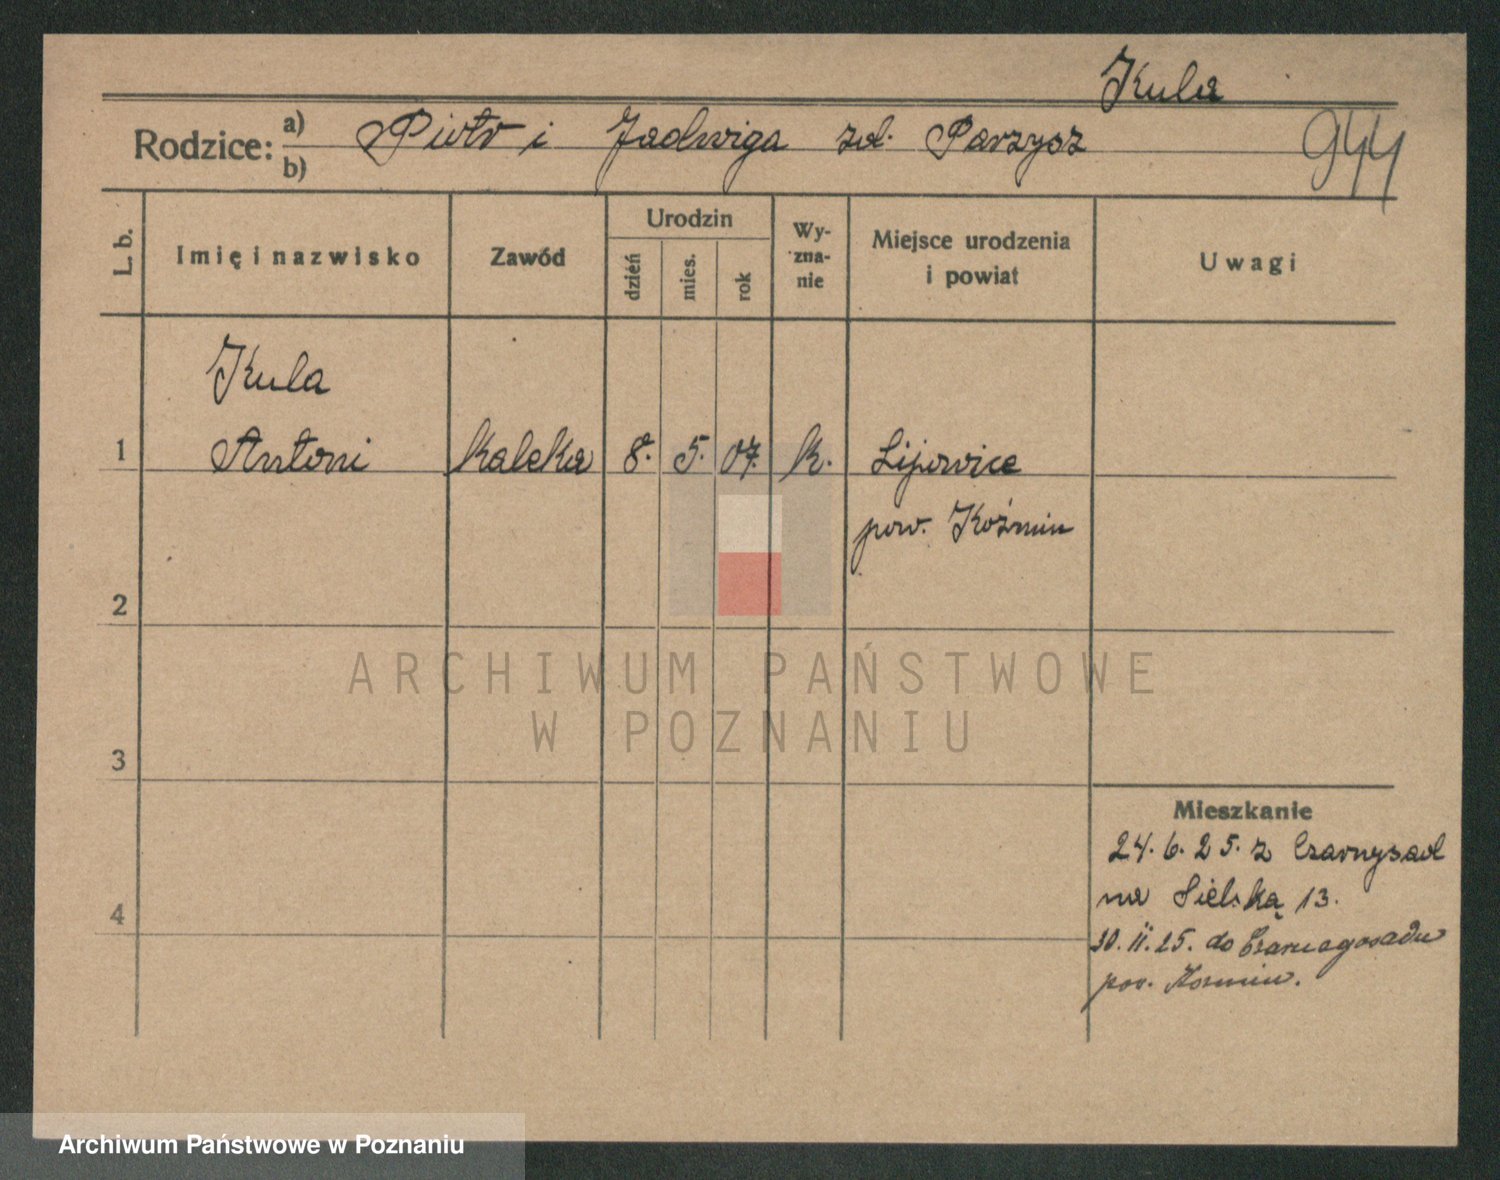 Kula
Rodzice: a) Piotr i Jadwiga zd. Parzysz 944
b)
L. b. Imię i nazwisko Zawód Urodzin dzień mies. rok Wy-zna-nie Miejsce urodzenia i powiat Uwagi
Kula
1 Antoni kaleka 8. 5. 07. k. Lipowice
pow. Koźmin
2
3
Mieszkanie
24. 6. 25. z Czarnysad
4 na Sielską 13.
30. II. 25. do Czarnegosadu
pow. Kozmin.
ARCHIWUM PAŃSTWOWE
W POZNANIU
Archiwum Państwowe w Poznaniu